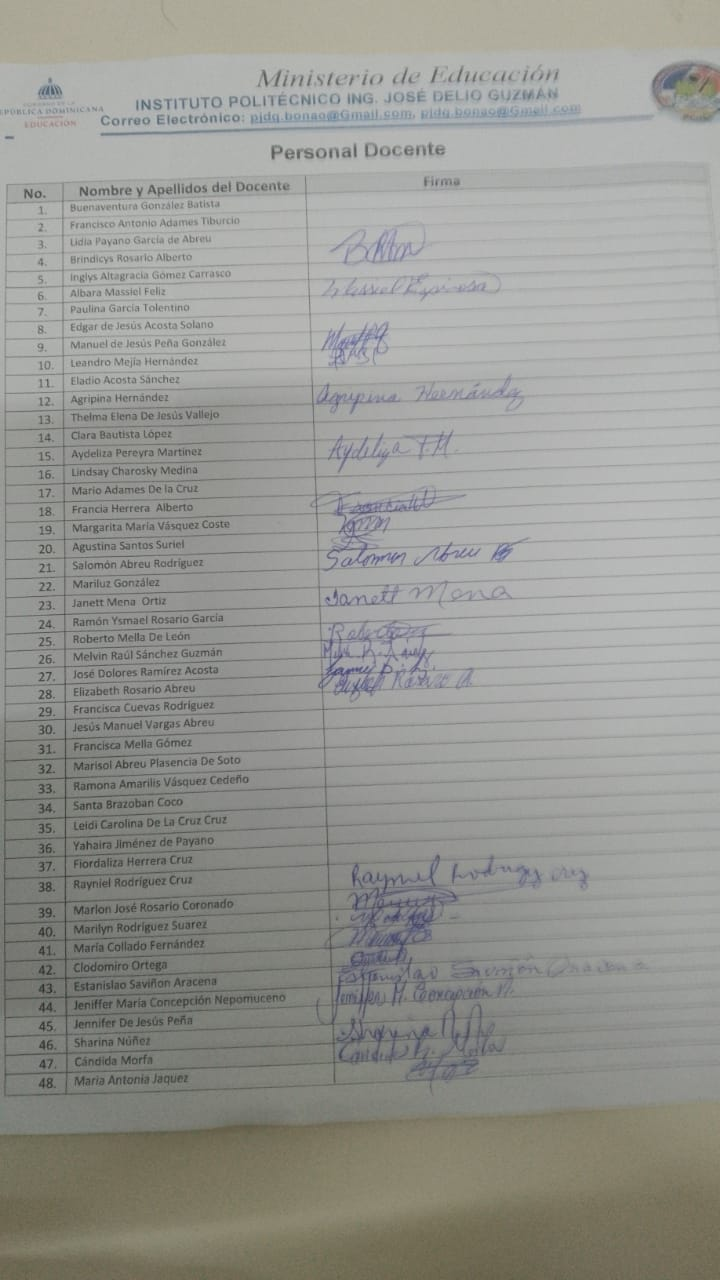 Ministerio de Educación
REPÚBLICA DOMINICANA
EDUCACIÓN
INSTITUTO POLITÉCNICO ING. JOSÉ DELIO GUZMÁN
Correo Electrónico: pjdg.bonao@Gmail.com, pjdg.bonao@Gmail.com
Personal Docente
No. Nombre y Apellidos del Docente Firma
1. Buenaventura González Batista
2. Francisco Antonio Adames Tiburcio
3. Lidia Payano García de Abreu
4. Brindicys Rosario Alberto
5. Inglys Altagracia Gómez Carrasco
6. Albara Massiel Feliz Massiel Espinosa
7. Paulina García Tolentino
8. Edgar de Jesús Acosta Solano
9. Manuel de Jesús Peña González
10. Leandro Mejía Hernández
11. Eladio Acosta Sánchez
12. Agripina Hernández Agripina Hernández
13. Thelma Elena De Jesús Vallejo
14. Clara Bautista López
15. Aydeliza Pereyra Martínez Aydeliza
16. Lindsay Charosky Medina
17. Mario Adames De la Cruz
18. Francia Herrera Alberto
19. Margarita María Vásquez Coste
20. Agustina Santos Suriel
21. Salomón Abreu Rodríguez Salomón Abreu
22. Mariluz González
23. Janett Mena Ortiz Janett Mena
24. Ramón Ysmael Rosario García
25. Roberto Mella De León
26. Melvin Raúl Sánchez Guzmán
27. José Dolores Ramírez Acosta
28. Elizabeth Rosario Abreu Rosario A.
29. Francisca Cuevas Rodríguez
30. Jesús Manuel Vargas Abreu
31. Francisca Mella Gómez
32. Marisol Abreu Plasencia De Soto
33. Ramona Amarilis Vásquez Cedeño
34. Santa Brazoban Coco
35. Leidi Carolina De La Cruz Cruz
36. Yahaira Jiménez de Payano
37. Fiordaliza Herrera Cruz
38. Rayniel Rodríguez Cruz Rayniel Rodríguez Cruz
39. Marlon José Rosario Coronado
40. Marilyn Rodríguez Suarez
41. María Collado Fernández
42. Clodomiro Ortega
43. Estanislao Saviñon Aracena Estanislao Saviñón Aracena
44. Jeniffer María Concepción Nepomuceno Jeniffer M. Concepción N.
45. Jennifer De Jesús Peña
46. Sharina Núñez Sharina
47. Cándida Morfa Candida Morfa
48. Maria Antonia Jaquez